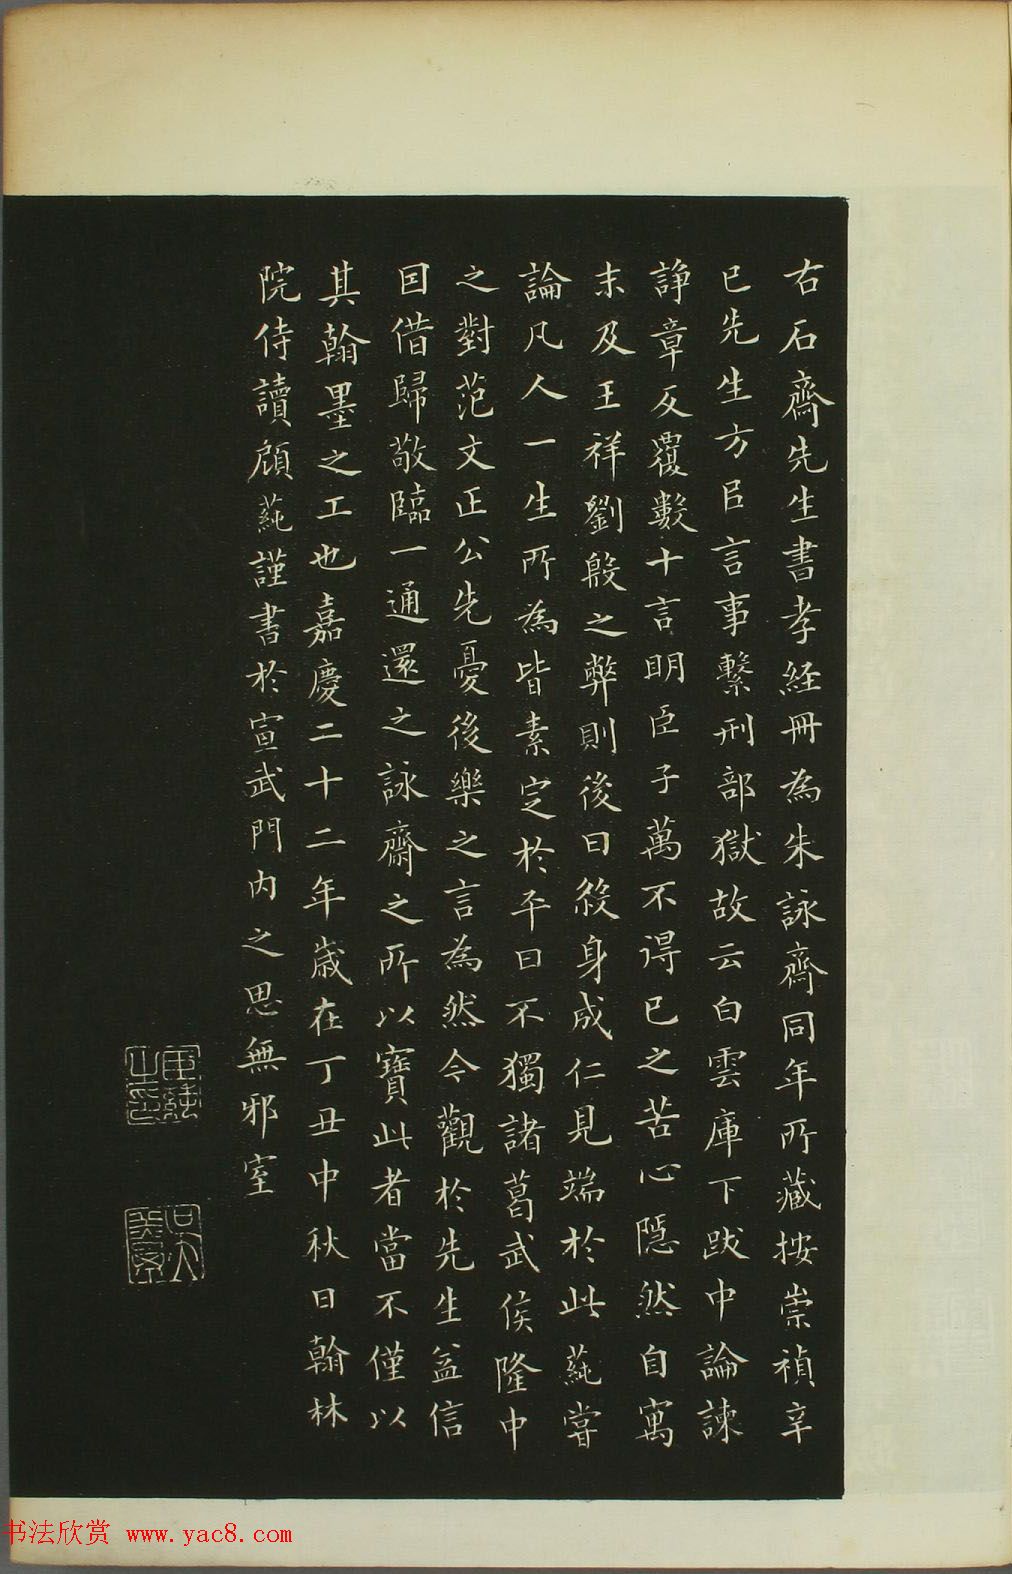 右石齋先生書孝經冊為朱詠齋同年所藏按崇禎辛
巳先生方㠯言事繫刑部獄故云白雲庫下跋中論諫
諍章反覆數十言明臣子萬不得已之苦心隱然自寓
末及王祥劉殷之弊則後日殺身成仁見端於此蒓嘗
論凡人一生所為皆素定於平日不獨諸葛武侯隆中
之對范文正公先憂後樂之言為然今觀於先生益信
因借歸敬臨一通還之詠齋之所以寶此者當不僅以
其翰墨之工也嘉慶二十二年歲在丁丑中秋日翰林
院侍讀顧蒓謹書於宣武門內之思無邪室
书法欣赏 www.yac8.com